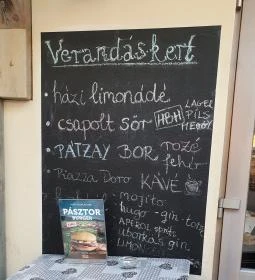 Verandás kert
házi limonádé
csapolt sör HBH LAGER
PILS
PÁTZAY BOR rozé
fehér
Piazza Doro KÁVÉ
mojito
hugo - gin-tonic
APEROL spritz
uborkás gin
PÁSZTOR
BURGER